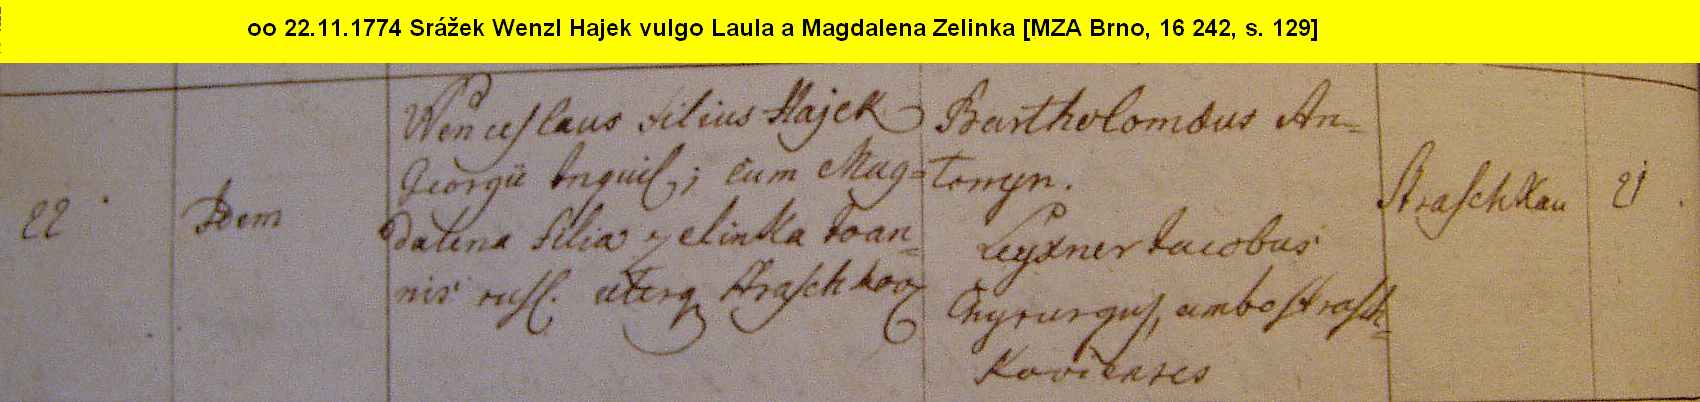 oo 22.11.1774 Srážek Wenzl Hajek vulgo Laula a Magdalena Zelinka [MZA Brno, 16 242, s. 129]
22
Idem
Wenceslaus Filius Hajek
Georgii Inquil; cum Mag=
dalena Filia Zelinka Joan=
nis rust. uterq Straschkov
Bartholomæus An=
tonyn.
Leyxner Jacobus
Chyrurgus, ambo Strasch=
kovienses
Straschkau
21.